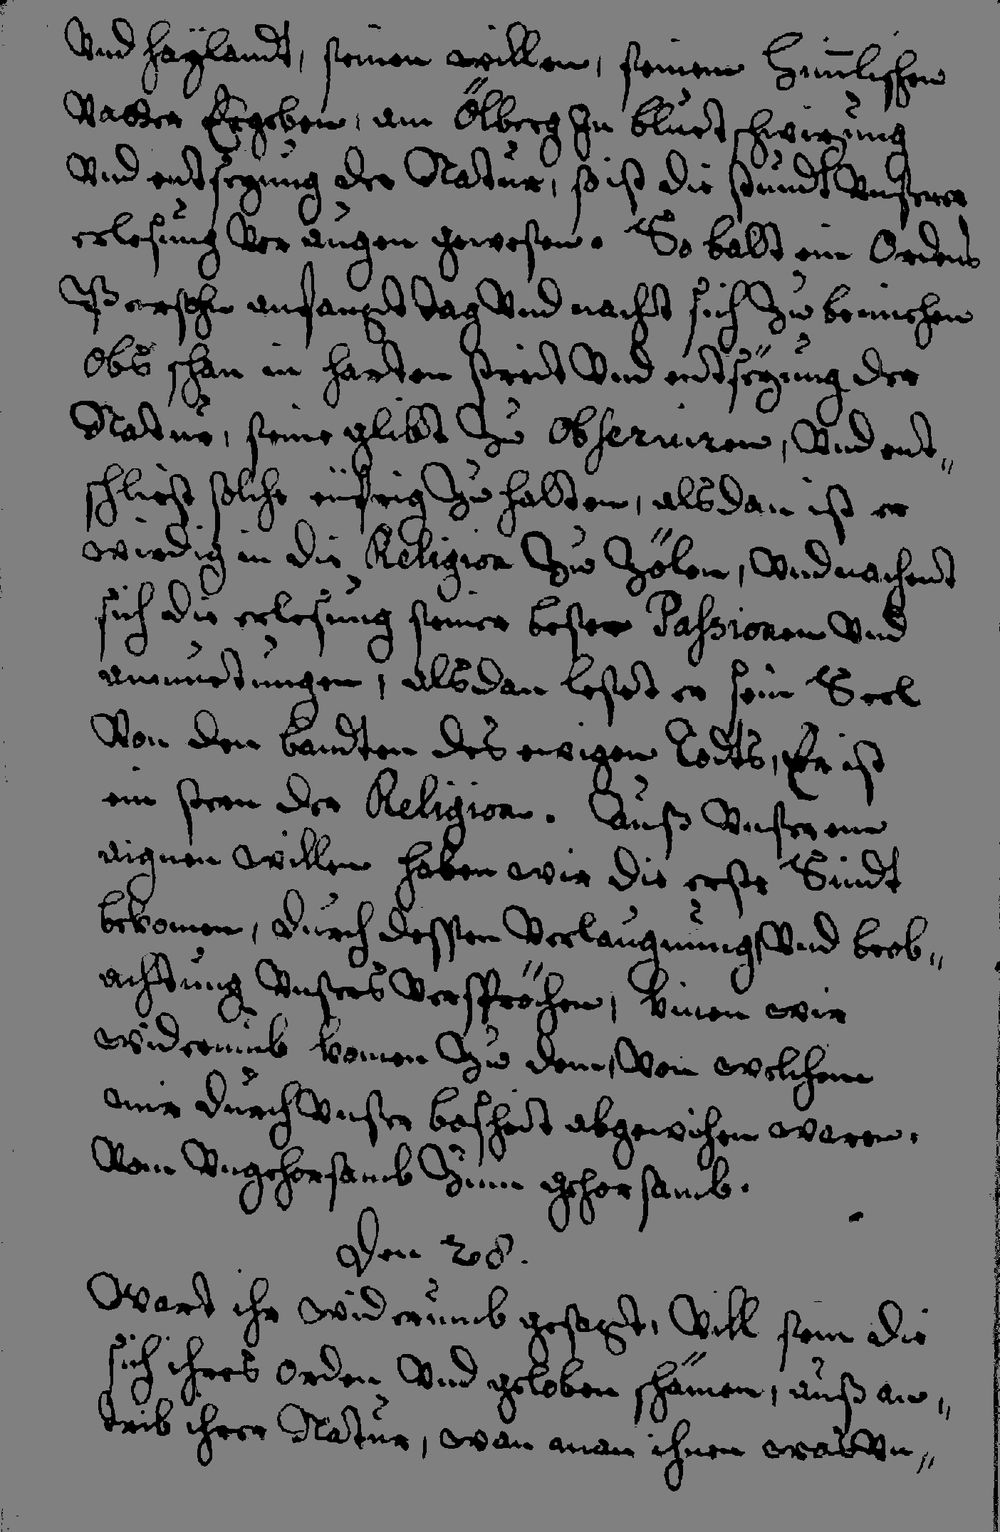 Vnd haÿlandt, seinen willen, seinem Himlischen
Vatter Ergeben, am Ölberg In bluet schwizung
Vnd entsezung der Natur, so ist die stundt Vnserer
erlesung Vor augen gewesen. So baldt ein Ordens
Persohn anfangt tag Vnd nacht sich zu bemiehen
Obs schan in harten streit Vnd entsëzung der
Natur, seine glibt zu Obseruiren, Vnd ent„
schliest solche eüfrig zu halten, alsdan ist er
wirdig in die Religion zu zölen, Vnd nachent
sich die erlesung seiner beser Passionen Vnd
anmuetungen, alsdan leset er sein Seel
Von den bandten des ewigen Todts, Er ist
ein stern der Religion. Auß Vnserem
aignen willen haben wir die erste Sündt
bekomen, durch dessen Verlaugnung Vnd beob„
achtung Vnsers Verspröchen, kinen wir
widerumb komen zu dem, Von welchem
mir durch Vnser bosheit abgewichen waren.
Vom Vngehorsamb zum gehorsamb.
Den 28.
Wart ihr widerumb gesagt, Vill sein die
sich ihres Orden Vnd geloben schämen, auß an„
trib ihrer Natur, wan man ihnen was Vn„